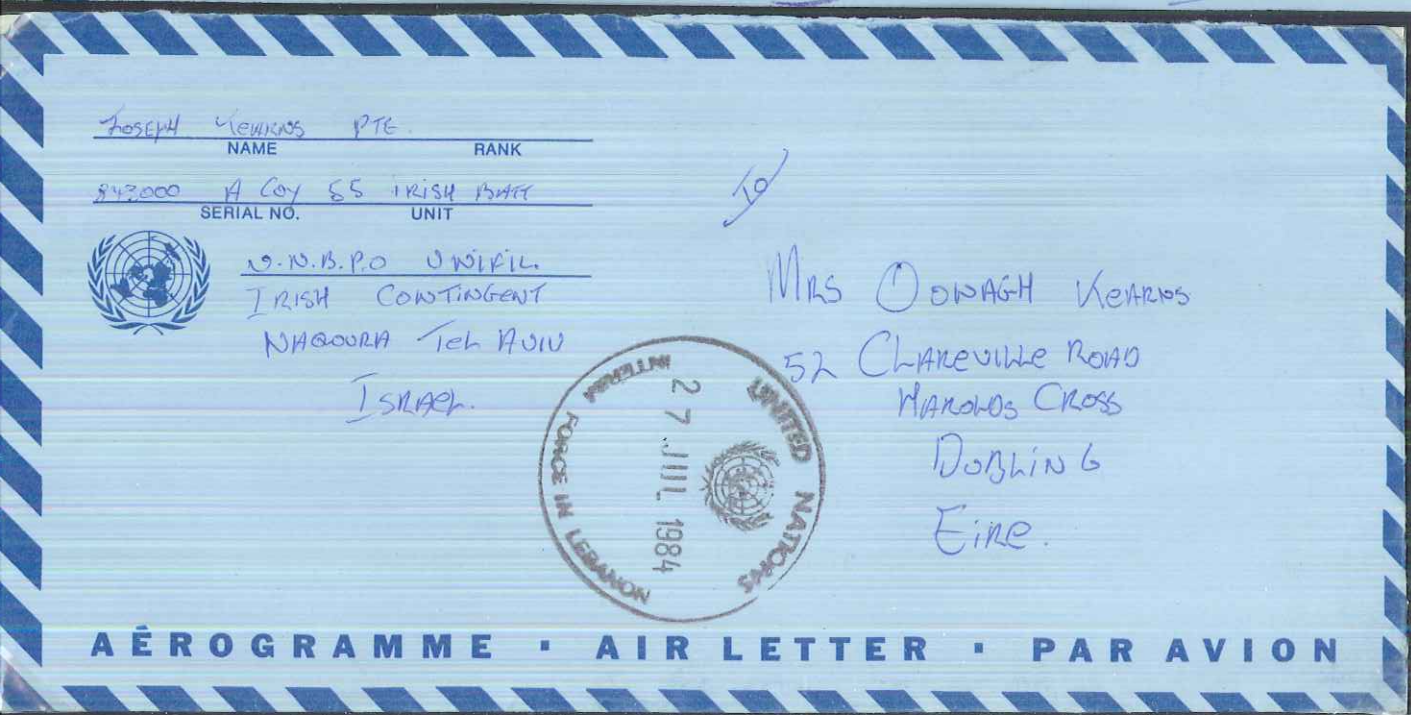 JOSEPH KEARNS PTE
NAME RANK
843000 A COY 55 IRISH BATT
SERIAL NO. UNIT
N.N.B.P.O UNIFIL.
IRISH CONTINGENT
NAQOURA TEL AVIV
ISRAEL.
TO
MRS OONAGH KEARNS
52 CLAREVILLE ROAD
HAROLDS CROSS
DUBLIN 6
EIRE.
UNITED NATIONS
INTERIM FORCE IN LEBANON
27 JUL 1984
AÉROGRAMME · AIR LETTER · PAR AVION